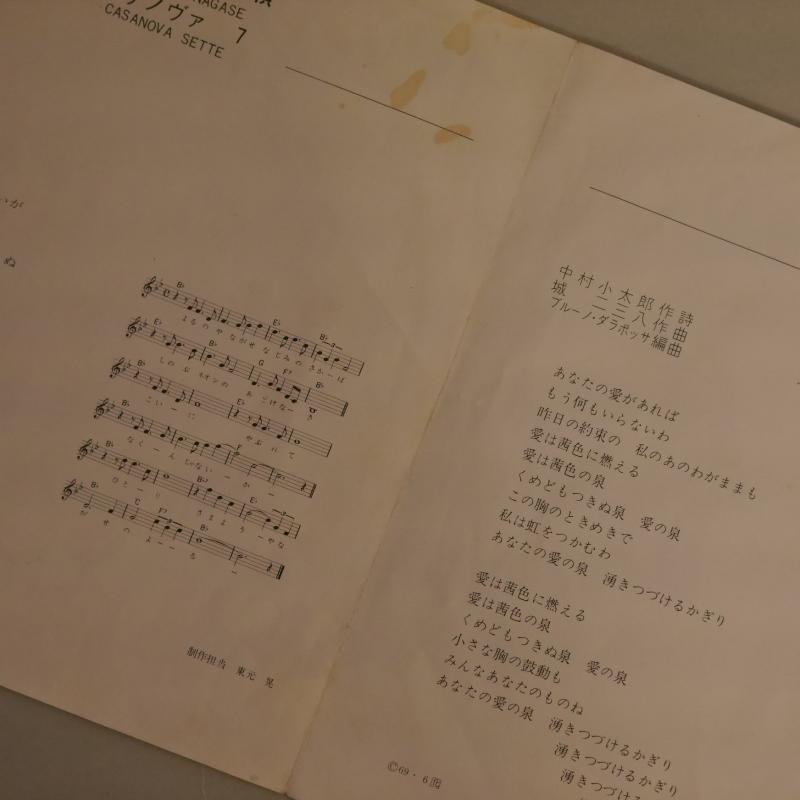 NAGASE
ノヴァ 7
CASANOVA SETTE
いが
ぬ
B♭
E♭
B♭
よるの やながせ なじみの さかーば
B♭
G
F7
B♭
しのぶ ネオンの あ こけなー さ
B♭
E♭
こいーに やぶれて
B♭
なくーんじゃないーかー
B♭
B♭7
E♭
ひとーり さまようーやな
B♭
C
F7
B♭
がせのよーーるー
制作担当 東元 晃
中村小太郎作詩
城 二三八作曲
ブルーノ・ダラポッサ編曲
あなたの愛があれば
もう何もいらないわ
昨日の約束の 私のあのわがままも
愛は茜色に燃える
愛は茜色の泉
くめどもつきぬ泉 愛の泉
この胸のときめきで
私は虹をつかむわ
あなたの愛の泉 湧きつづけるかぎり
愛は茜色に燃える
愛は茜色の泉
くめどもつきぬ泉 愛の泉
小さな胸の鼓動も
みんなあなたのものね
あなたの愛の泉 湧きつづけるかぎり
湧きつづけるかぎり
湧きつづけるかぎり
©69・6